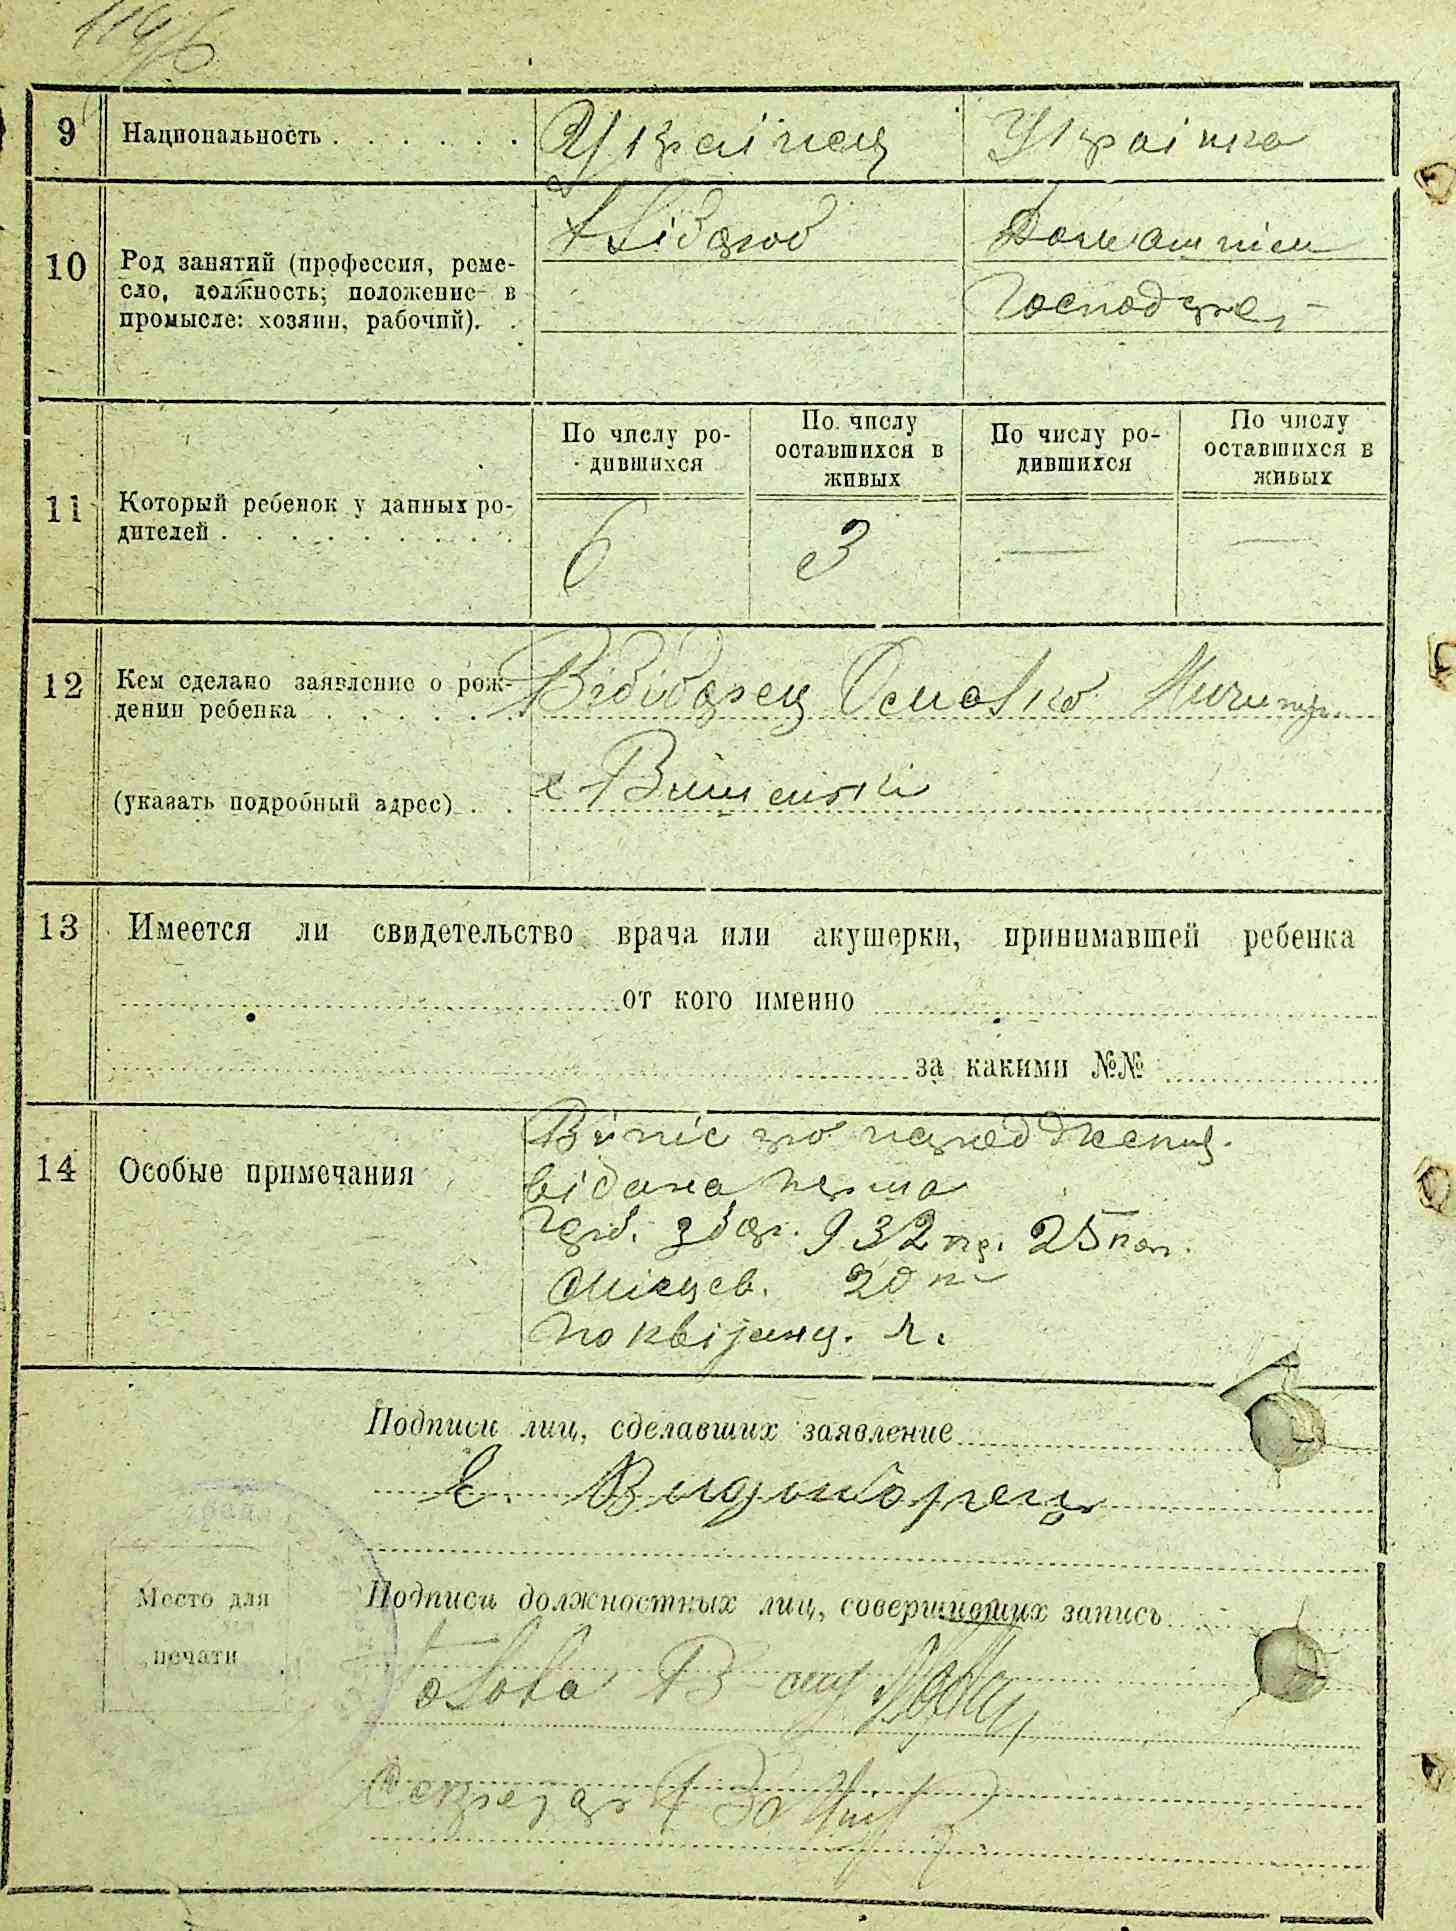 9 Национальность . . . . . . Українец Українка
10 Род занятий (профессия, реме-
сло, должность; положение в
промысле: хозяин, рабочий). . Хлібороб Домашнєм
господарє
11 Который ребенок у данных ро-
дителей . . . . . . . . . .
По числу ро-
дившихся
По числу
оставшихся в
живых
По числу ро-
дившихся
По числу
оставшихся в
живых
6 3 — —
12 Кем сделано заявление о рож-
дении ребенка . . . . . . Видиборец
(указать подробный адрес) . . с Вишеньки
13 Имеется ли свидетельство врача или акушерки, принимавшей ребенка
от кого именно
за какими №№
14 Особые примечания
Випіс про народженц.
видана перша
Герб. збор. 932 25 коп.
Місцев. 20 к
по квітанц. ч.
Подписи лиц, сделавших заявление
Е. Видиборец
Место для
печати
Подписи должностных лиц, совершивших запись
Голова В-
Секретар